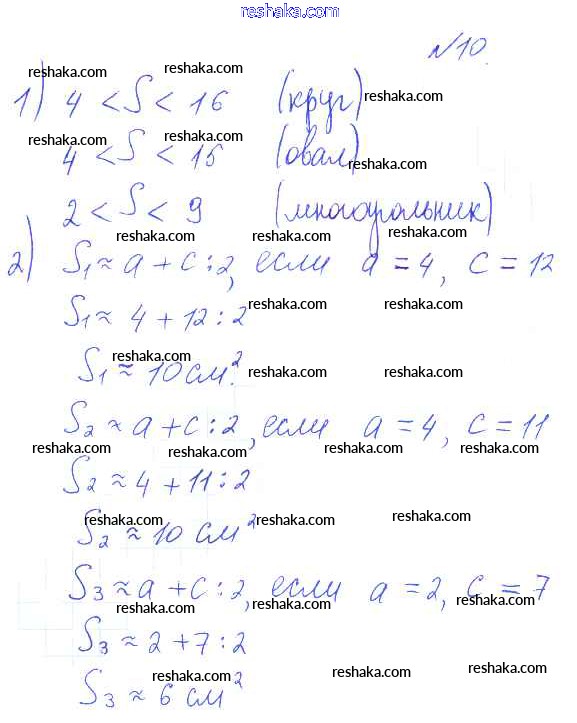 reshaka.com
№10.
reshaka.com reshaka.com
1) 4 < S < 16 (круг) reshaka.com
reshaka.com reshaka.com
4 < S < 15 (овал) reshaka.com
2 < S < 9 (многоугольник)
reshaka.com reshaka.com reshaka.com
2) S₁ ≈ a + c : 2, если a = 4, c = 12
reshaka.com reshaka.com
S₁ ≈ 4 + 12 : 2
reshaka.com reshaka.com reshaka.com
S₁ ≈ 10 см².
S₂ ≈ a + c : 2, если a = 4, c = 11
reshaka.com reshaka.com reshaka.com reshaka.com
S₂ ≈ 4 + 11 : 2
reshaka.com reshaka.com reshaka.com
S₂ ≈ 10 см²
S₃ ≈ a + c : 2, если a = 2, c = 7
reshaka.com reshaka.com reshaka.com
S₃ ≈ 2 + 7 : 2
reshaka.com reshaka.com reshaka.com
S₃ ≈ 6 см²